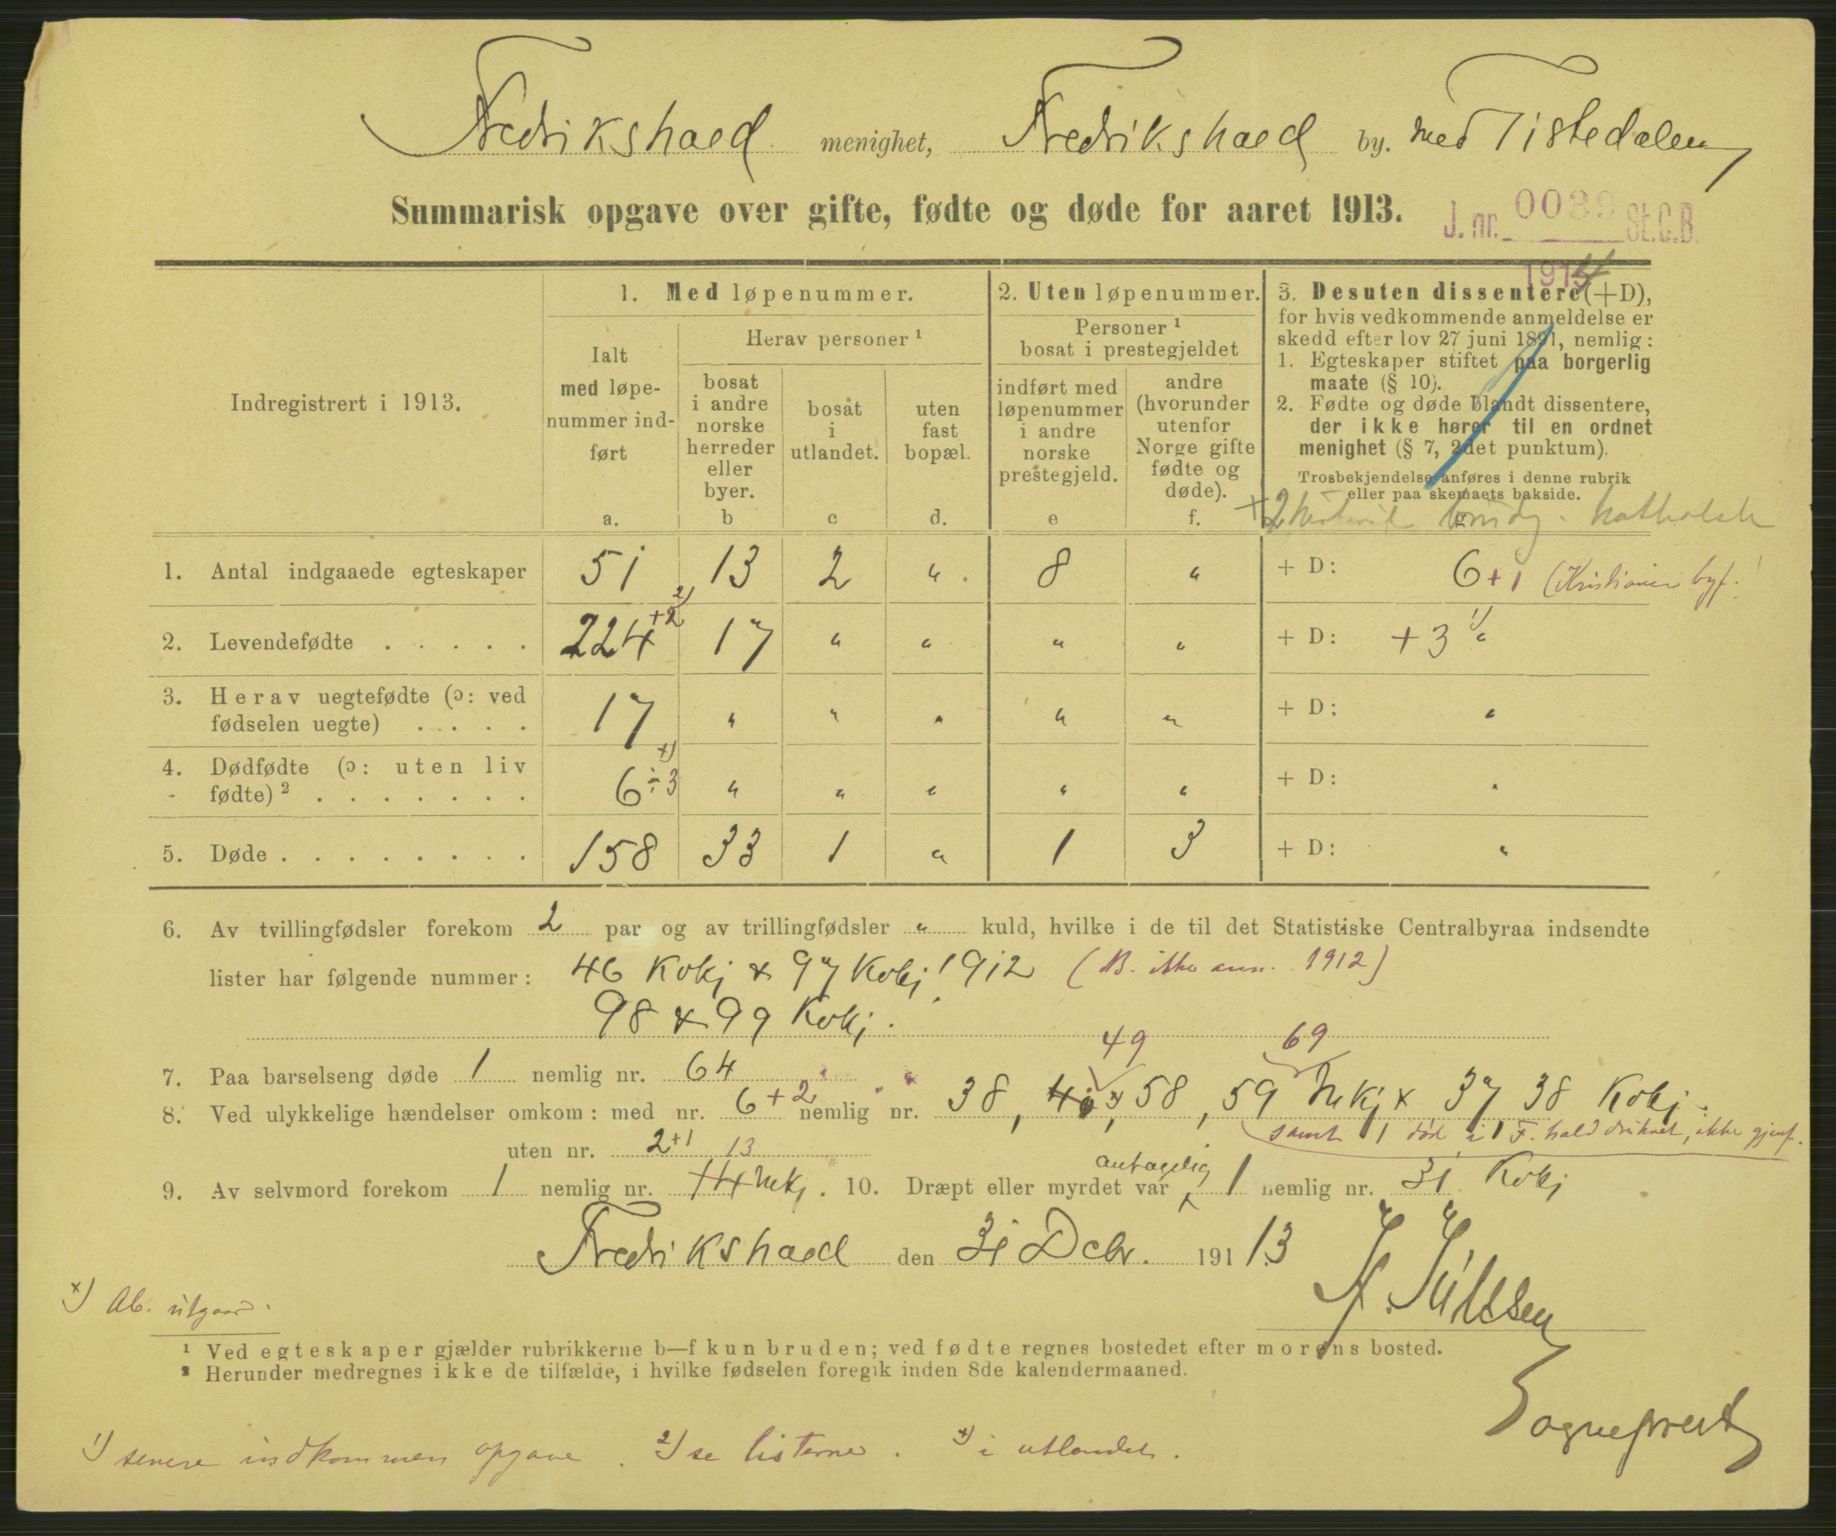 Fredrikshald menighet, Fredrikshald by. med Tistedalen
Summarisk opgave over gifte, fødte og døde for aaret 1913.
J. nr. 0039 St.C.B.
1914
Indregistrert i 1913.
1. Med løpenummer.
Ialt med løpe- nummer ind- ført
a.
Herav personer ¹
bosat i andre norske herreder eller byer.
b
bosat i utlandet.
c
uten fast bopæl.
d.
2. Uten løpenummer.
Personer ¹ bosat i prestegjeldet
indført med løpenummer i andre norske prestegjeld.
e
andre (hvorunder utenfor Norge gifte fødte og døde).
f.
3. Desuten dissentere (+D),
for hvis vedkommende anmeldelse er
skedd efter lov 27 juni 1891, nemlig:
1. Egteskaper stiftet paa borgerlig
maate (§ 10).
2. Fødte og døde blandt dissentere,
der ikke hører til en ordnet
menighet (§ 7, 2det punktum).
Trosbekjendelse anføres i denne rubrik
eller paa skemaets bakside.
+2 katholsk
1. Antal indgaaede egteskaper 51 13 2 " 8 " + D: 6 + 1 (Kristiania byf.!
2. Levendefødte . . . . . 224 +2 2) 17 " " " " + D: + 3 1) "
3. Herav uegtefødte (ɔ: ved
fødselen uegte) . . . . 17 " " " " " + D: "
4. Dødfødte (ɔ: uten liv
fødte) ² . . . . . . . 6 ÷ 3 x) " " " " " + D: "
5. Døde . . . . . . . . 158 33 1 " 1 3 + D: "
6. Av tvillingfødsler forekom 2 par og av trillingfødsler " kuld, hvilke i de til det Statistiske Centralbyraa indsendte
lister har følgende nummer: 46 Kvkj & 97 Kvkj 1912 (B. ikke ann. 1912)
98 & 99 Kvkj.
49 69
7. Paa barselseng døde 1 nemlig nr. 64
8. Ved ulykkelige hændelser omkom: med nr. 6 + 2 nemlig nr. 38, 58, 59 Mkj & 37 38 Kvkj.
samt 1 død i F.hald druknet, ikke gjenf.
uten nr. 2 +1 13
9. Av selvmord forekom 1 nemlig nr. 14 Mkj. 10. Dræpt eller myrdet var antagelig 1 nemlig nr. 31 Kvkj
Fredrikshald den 31 Decbr. 1913
x) Ab. utgaar.
¹ Ved egteskaper gjælder rubrikkerne b—f kun bruden; ved fødte regnes bostedet efter morens bosted.
² Herunder medregnes ikke de tilfælde, i hvilke fødselen foregik inden 8de kalendermaaned.
Sogneprest
1) senere indkommen opgave. 2) se listerne. x) i utlandet.